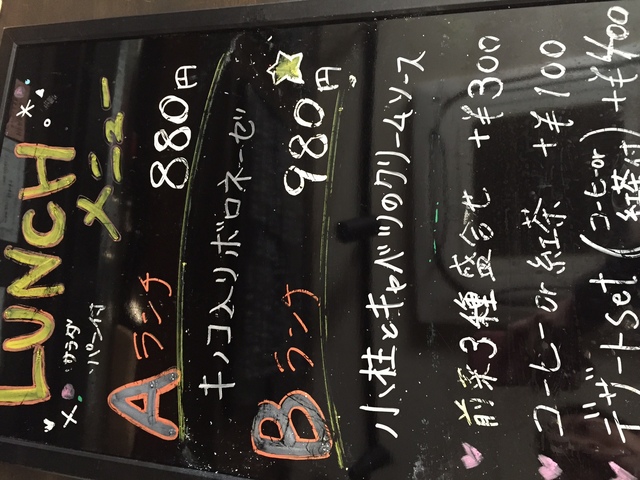 LUNCH
メニュー
サラダ
パン付
Aランチ 880円
キノコ入りボロネーゼ
Bランチ 980円
小柱とキャベツのクリームソース
前菜3種盛合せ +¥300
コーヒーor紅茶 +¥100
デザートset(コーヒーor紅茶付) +¥400